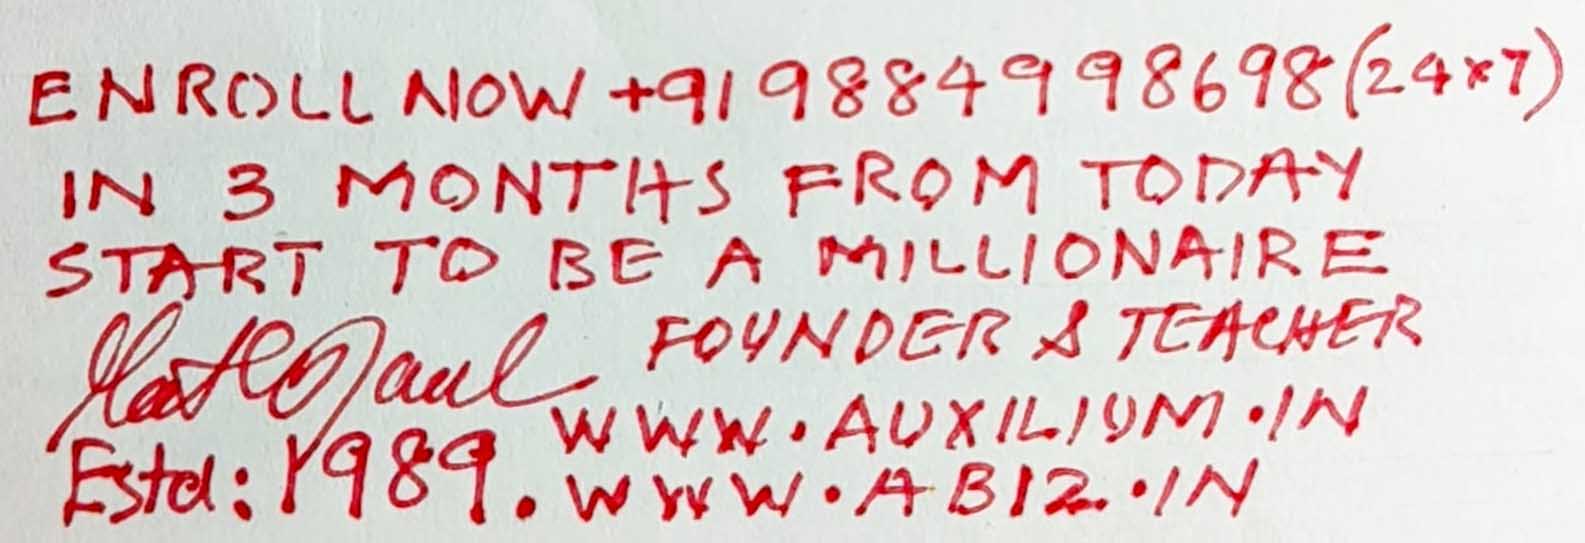 ENROLL NOW +91 9884998698 (24x7)
IN 3 MONTHS FROM TODAY
START TO BE A MILLIONAIRE
FOUNDER & TEACHER
WWW.AUXILIUM.IN
Estd: 1989. WWW.ABIZ.IN